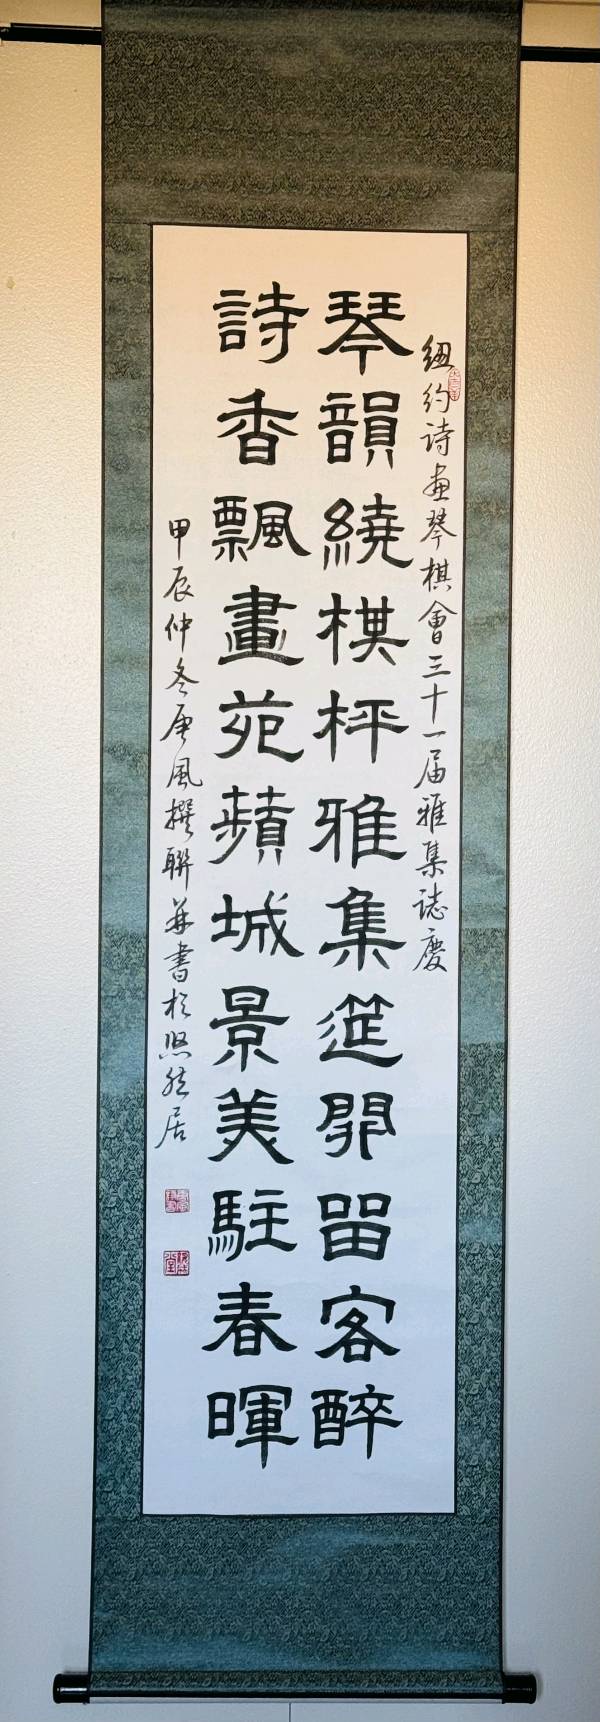 紐約詩畫琴棋會三十一届雅集誌慶
琴韻繞棋枰雅集筵開留客醉
詩香飄畫苑蘋城景美駐春暉
甲辰仲冬唐風撰聯并書於照然居